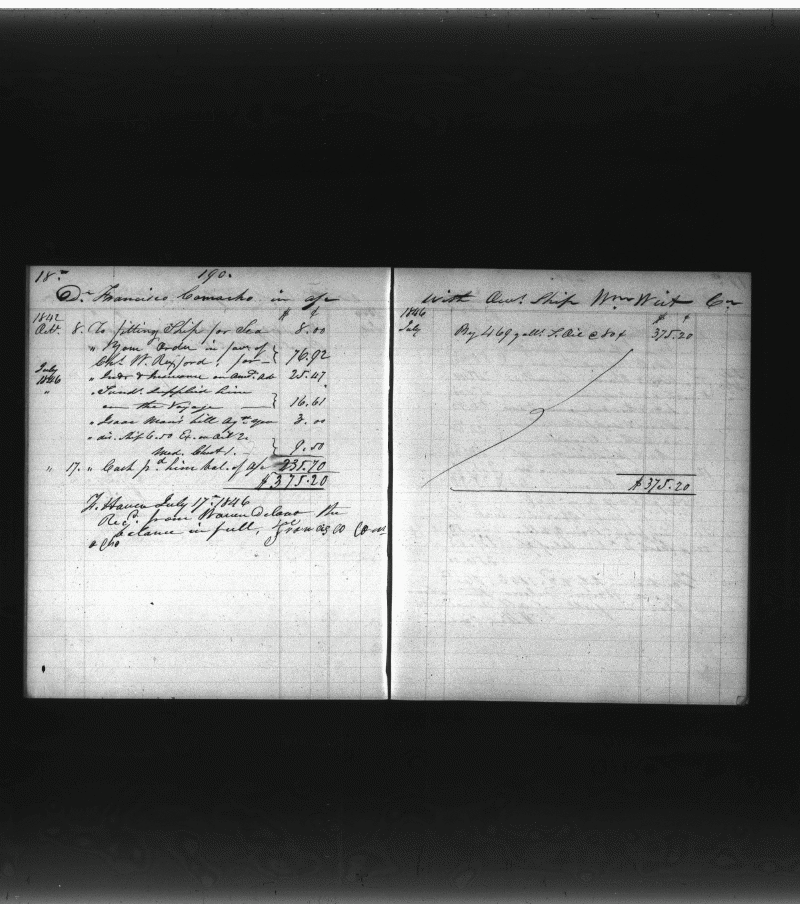 18th 190.
Dr. Francisco Comacho in a/c
$ ¢
1842
Octr. 8. To fitting Ship for Sea 8.00
" Your Order in favor of
Chs. W. for 76.92
July
1846 " Int & Insurance on 25.47
" " Sunds. supplied him
on the Voyage 16.61
" Isaac bill 3.00
" dis. Ship 6.50 Ex. on
Med. Chest 1. 9.50
" 17. " Cash pd. him bal. of a/c 235.70
$375.20
F. Haven July 17th 1846
Recd. from Warren Delano the
balance in full,
with Ship Wm Wirt Cr.
1846 $ ¢
July By 469 galls S. Oil @ 80¢ 375.20
$375.20